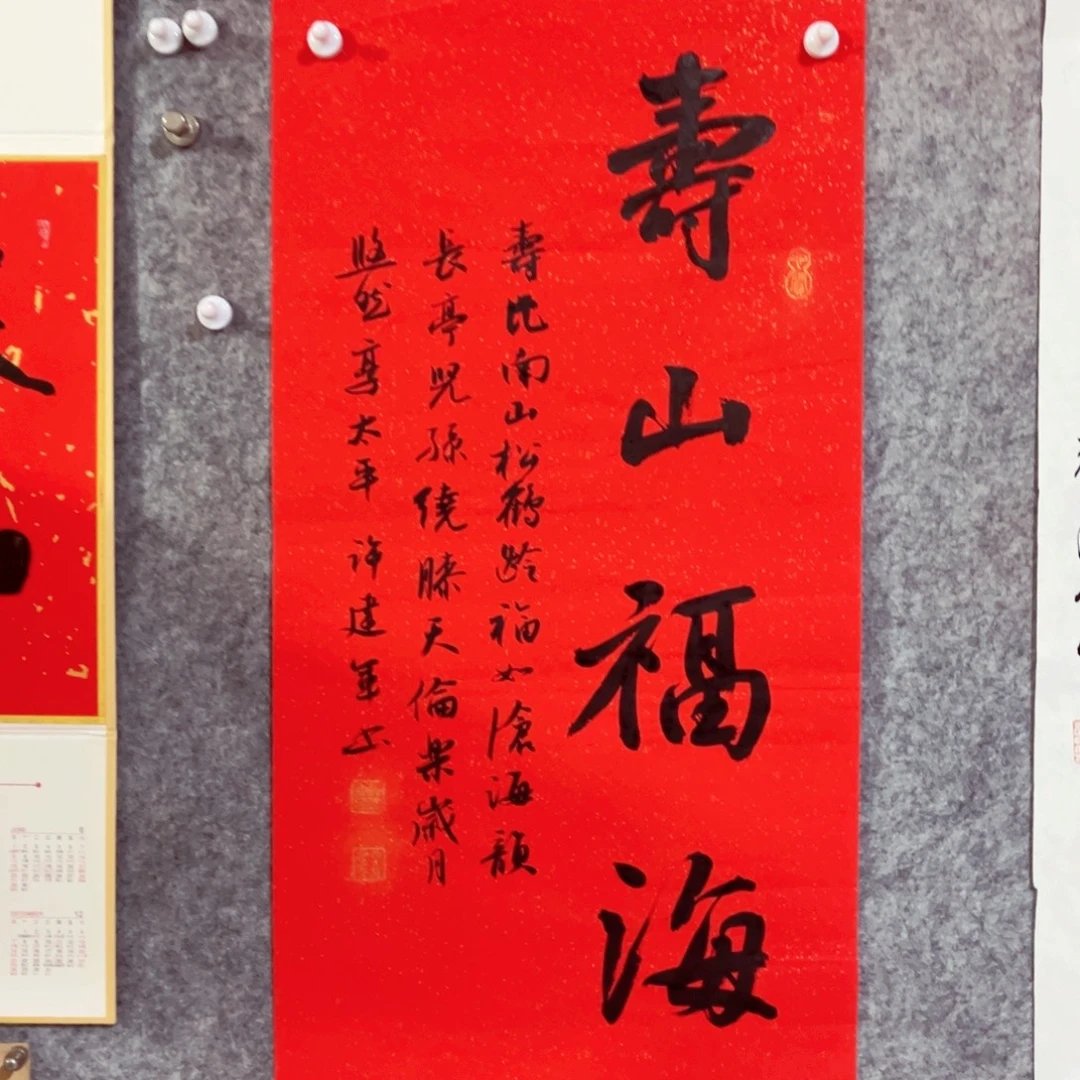 壽山福海
壽比南山松鶴齡福如滄海韻
長亭兒孫繞膝天倫樂歲月
悠然享太平 許建軍書